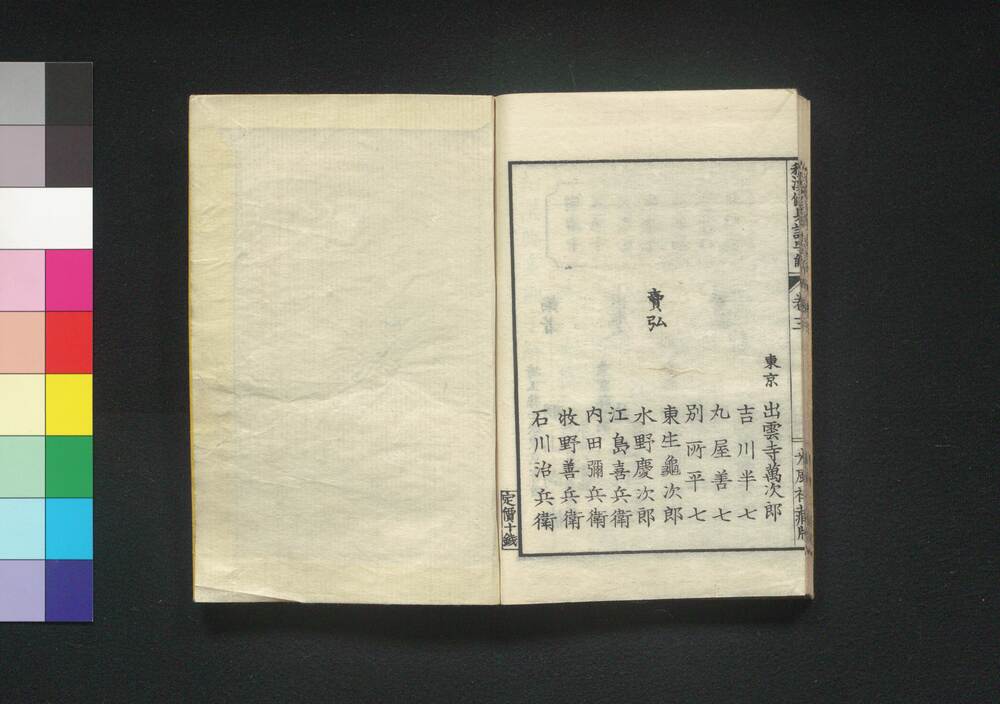 卷三
東京
出雲寺萬次郎
吉川半七
丸屋善七
別所平七
賣弘
東生龜次郎
水野慶次郎
江島喜兵衛
内田彌兵衛
牧野善兵衛
石川治兵衛
定價十錢